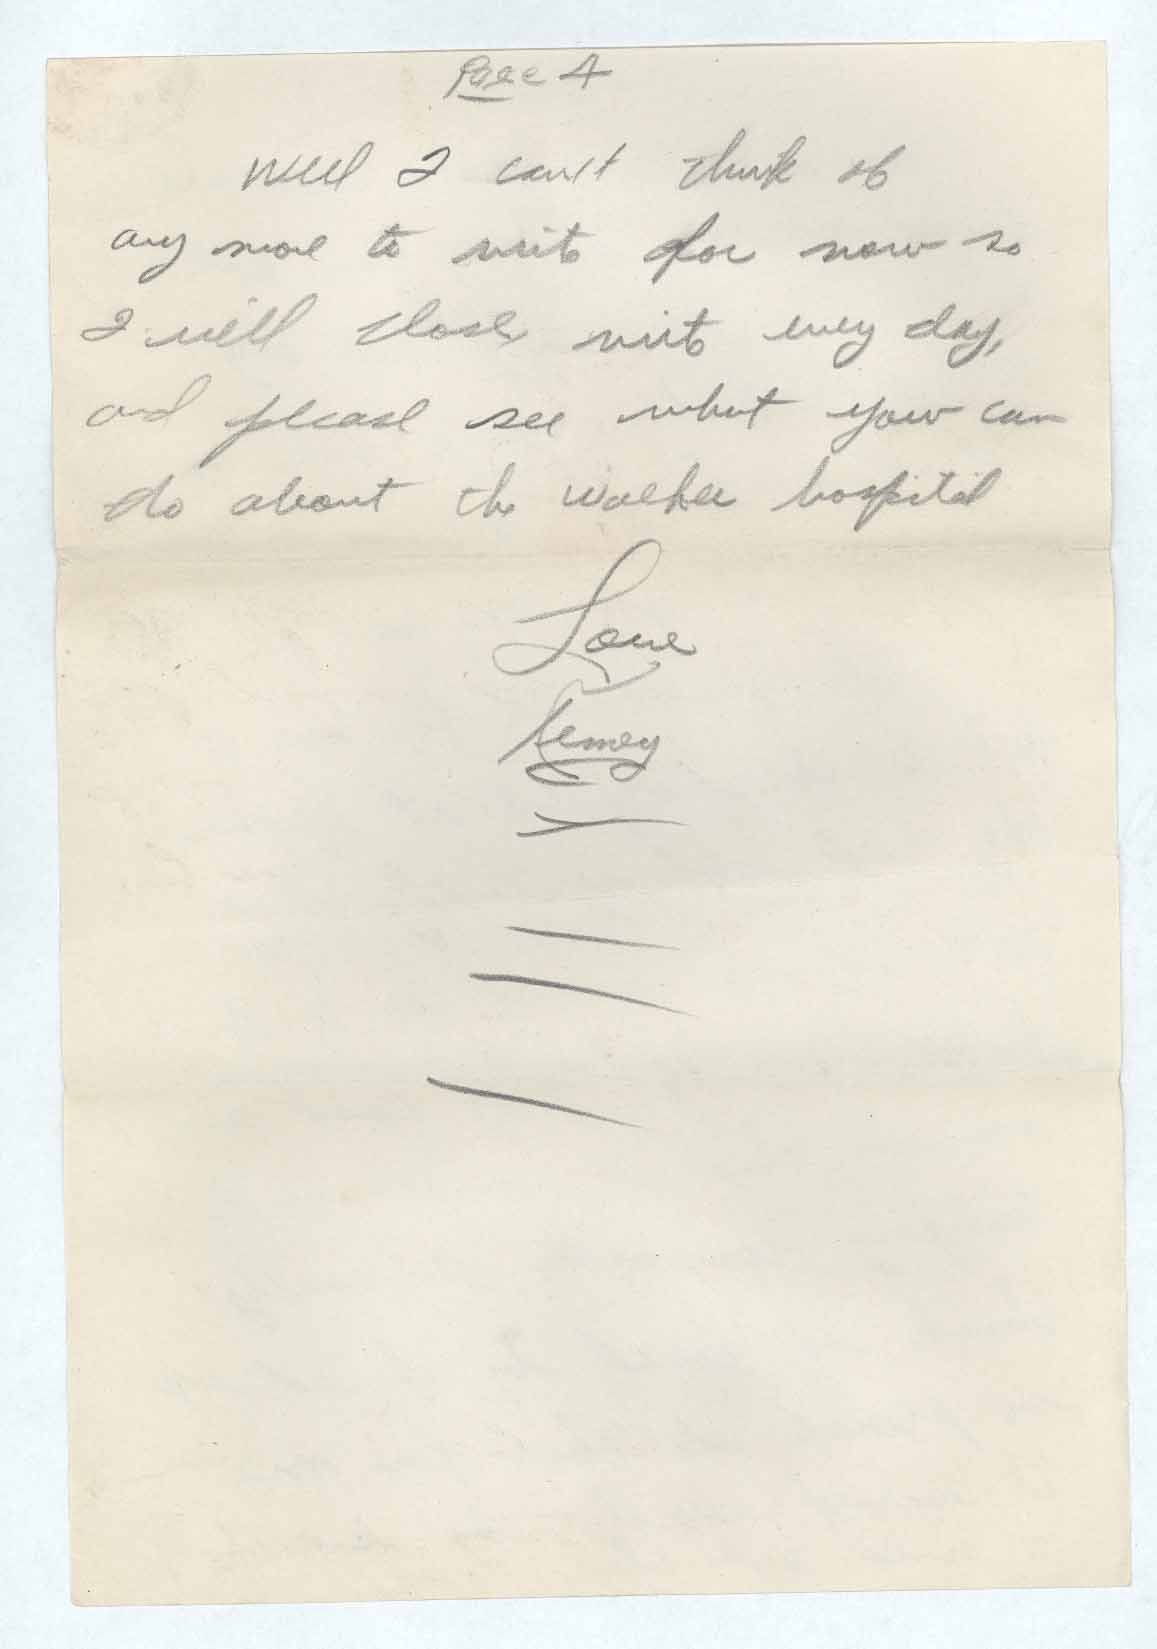 Page 4
Well I can't think of
any more to write for now so
I will close, write every day,
and please see what you can
do about the Walker hospital
Love